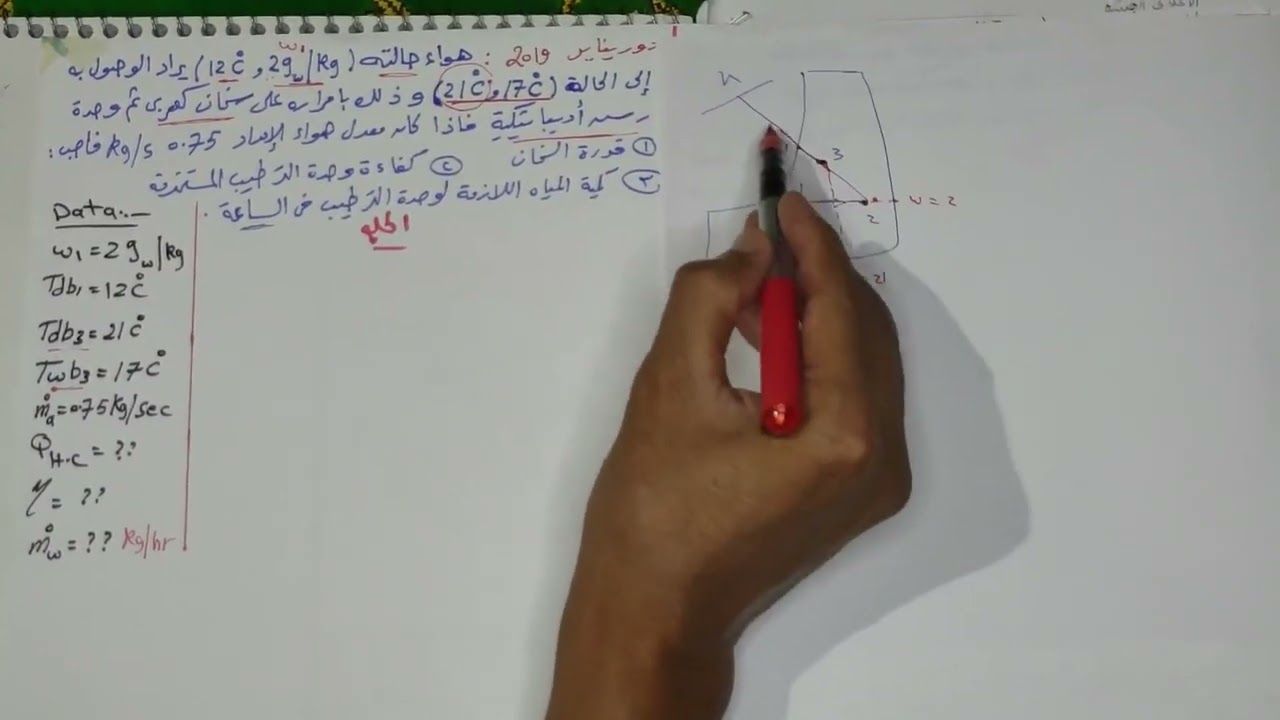 دور يناير 2019 : هواء حالته (12C°, 2gw/kg) يراد الوصول به
w1
إلى الحالة (21C°, 17C°) وذلك بإمراره على سخان كهربى ثم وحدة
رسم أديباتيكية فإذا كان معدل هواء الإمداد 0.75 kg/s فاحسب:
① قدرة السخان ② كفاءة وحدة الترطيب المستخدمة
③ كمية المياه اللازمة لوحدة الترطيب فى الساعة.
الحل
Data:-
w1 = 2 gw/kg
Tdb1 = 12C°
Tdb3 = 21C°
Twb3 = 17C°
m°a = 0.75 kg/sec
QH.C = ??
η = ??
m°w = ?? kg/hr
h
3
2
w = 2
21